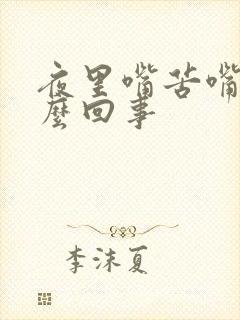 夜里嘴苦嘴
麼回事
李沫夏